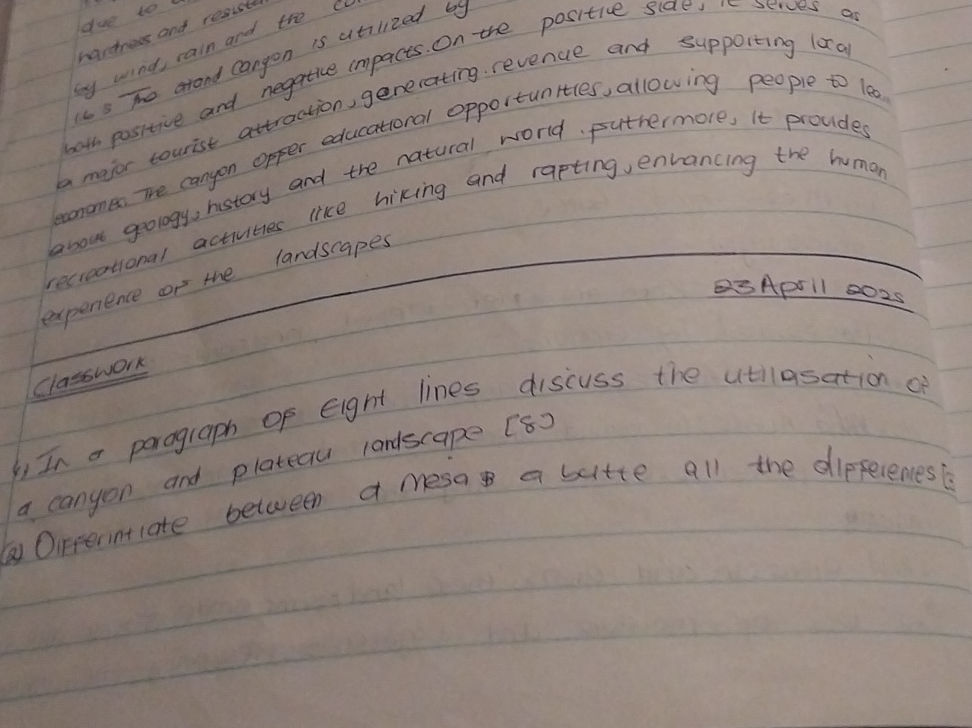 due to
hardness and
by wind, rain and the
1.6.3 The Grand Canyon is utilized by
both positive and negative impacts. On the positive side, it serves as
a major tourist attraction, generating revenue and supporting local
The canyon offer educational opportunities, allowing people to
about geology, history and the natural world. futhermore, it provides
recreational activities like hiking and rafting, enhancing the human
experience of the landscapes
23 April 2025
Classwork
1, In a paragraph of Eight lines discuss the utilasation of
a canyon and plateau landscape [8]
(2) Differintiate between a mesa & a butte all the differences